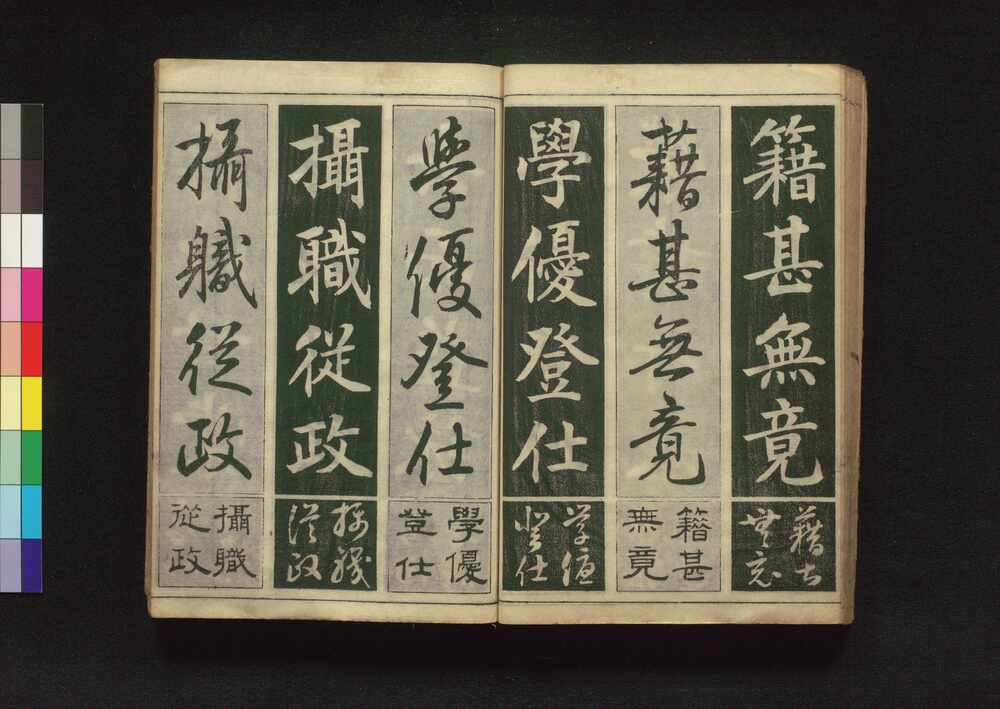 籍甚無竟
藉甚
無竟
藉甚無竟
籍甚
無竟
學優登仕
学優
登仕
學優登仕
學優
登仕
攝職從政
攝職
從政
攝軄從政
攝職
從政